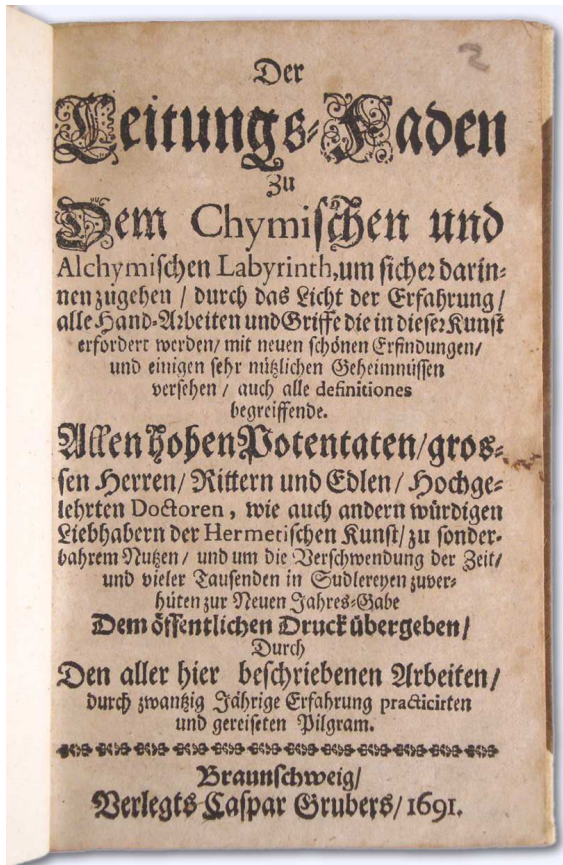 2
Der
Leitungs-Faden
Zu
Dem Chymischen und
Alchymischen Labyrinth, um sicher darin-
nen zugehen / durch das Licht der Erfahrung /
alle Hand-Arbeiten und Griffe die in dieser Kunst
erfordert werden / mit neuen schönen Erfindungen /
und einigen sehr nützlichen Geheimnüssen
versehen / auch alle definitiones
begreiffende.
Allen hohen Potentaten / gros-
sen Herren / Rittern und Edlen / Hochge-
lehrten Doctoren, wie auch andern würdigen
Liebhabern der Hermetischen Kunst / zu sonder-
bahrem Nutzen / und um die Verschwendung der Zeit /
und vieler Tausenden in Sudlereyen zuver-
hüten zur Neuen Jahres-Gabe
Dem öffentlichen Druck übergeben /
Durch
Den aller hier beschriebenen Arbeiten /
durch zwantzig Jährige Erfahrung practicirten
und gereiseten Pilgram.
Braunschweig /
Verlegts Caspar Grubers / 1691.